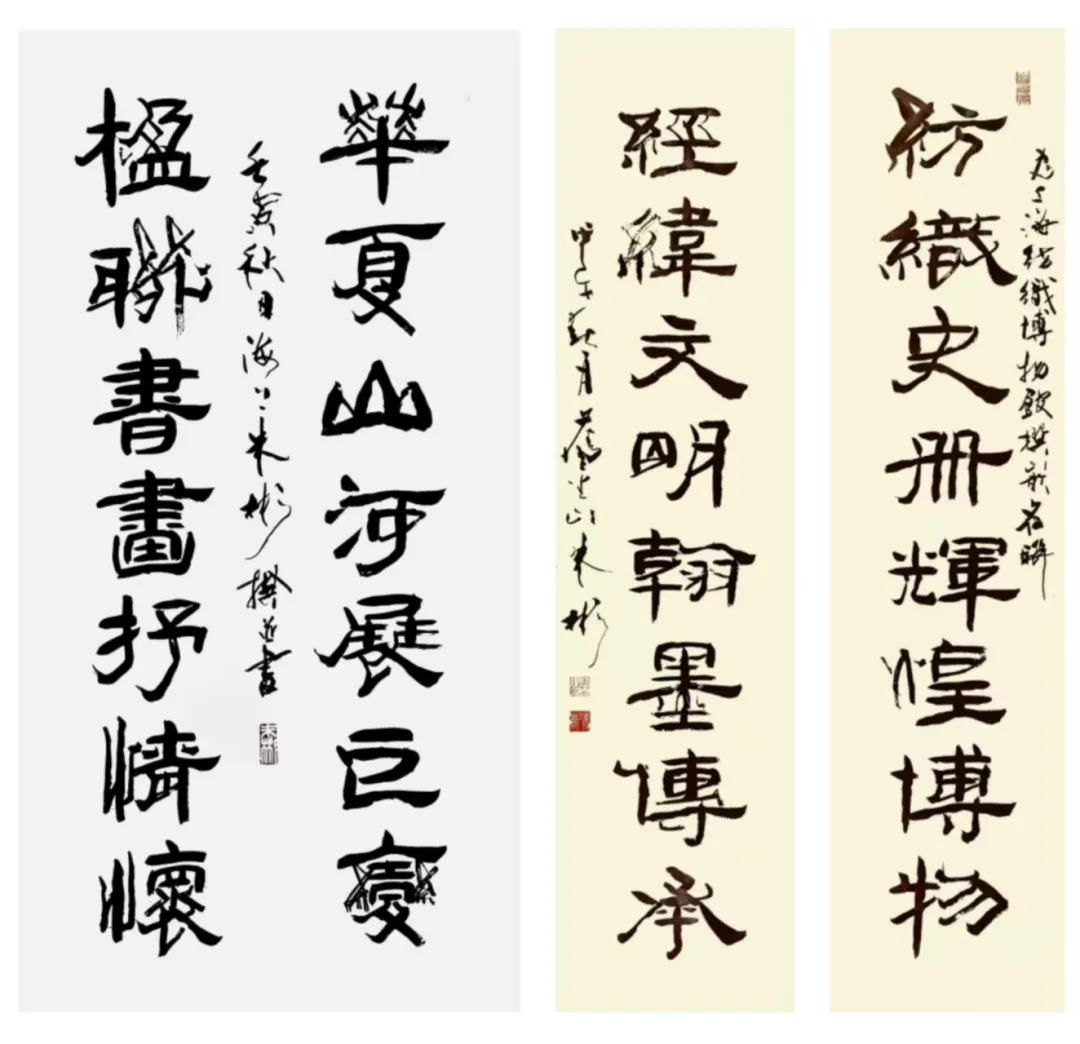 為上海紡織博物館撰嵌名聯
紡織史册輝煌博物
經緯文明翰墨傳承
甲午 月 朱彬
華夏山河展巨變
壬寅秋日海上朱彬撰並書
楹聯書畫抒情懷